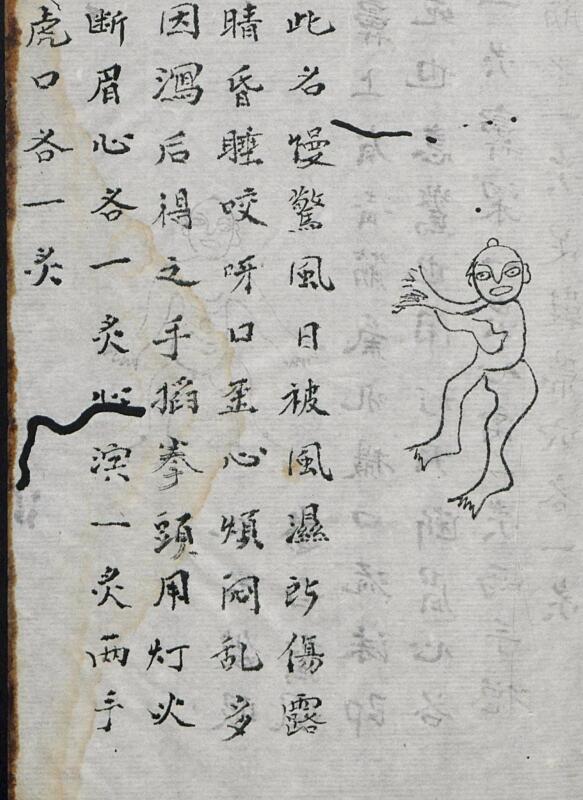 此名慢驚風日被風濕所傷露
晴昏睡咬呀口歪心煩悶乱多
因瀉后得之手搯拳頭用灯火
断眉心各一炙心演一炙两手
虎口各一炙